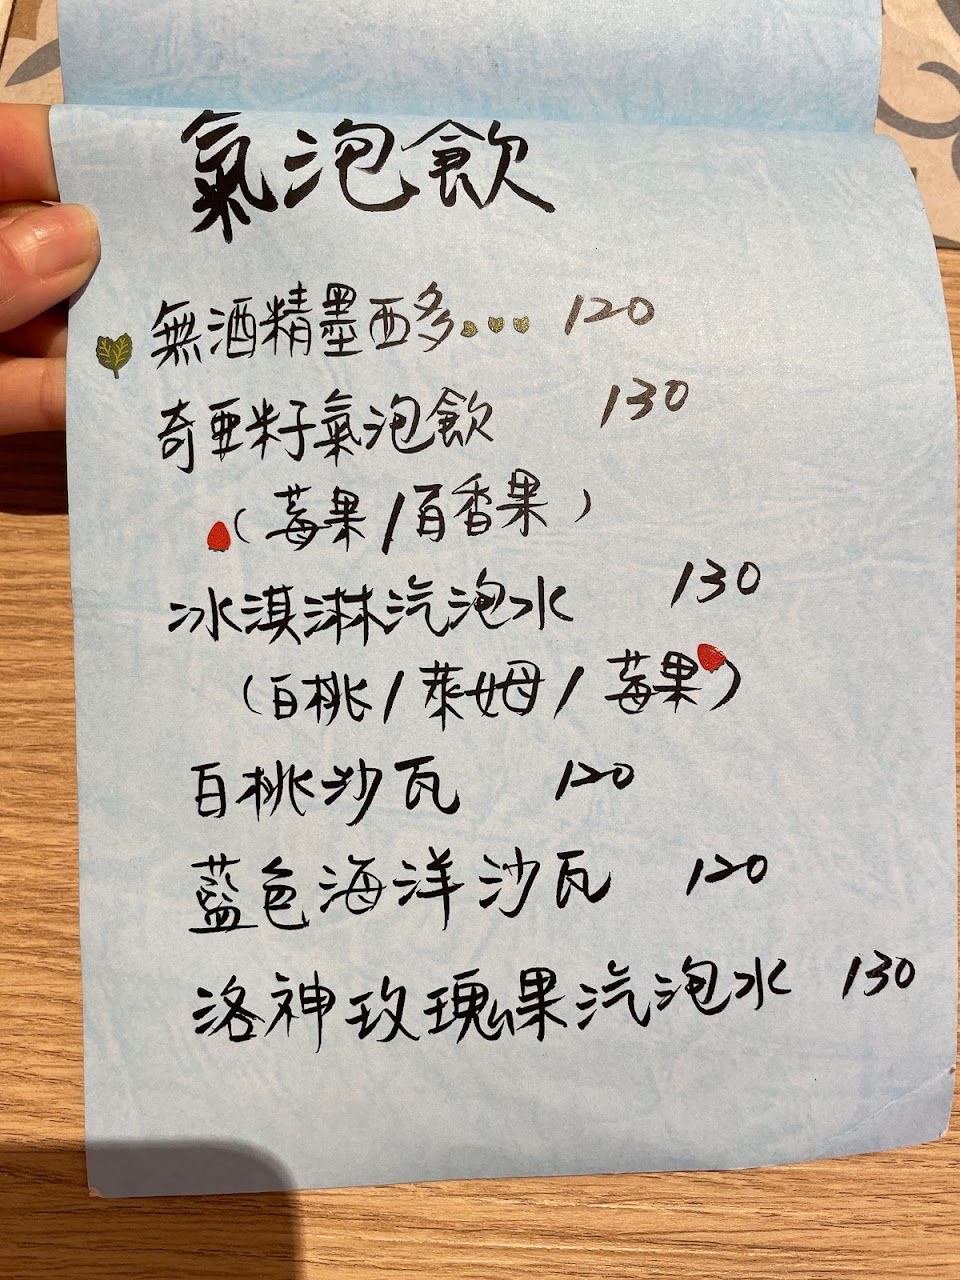 氣泡飲
無酒精墨西多... 120
奇亜籽氣泡飲 130
(莓果/百香果)
冰淇淋汽泡水 130
(白桃/萊姆/莓果)
白桃沙瓦 120
藍色海洋沙瓦 120
洛神玫瑰果汽泡水 130